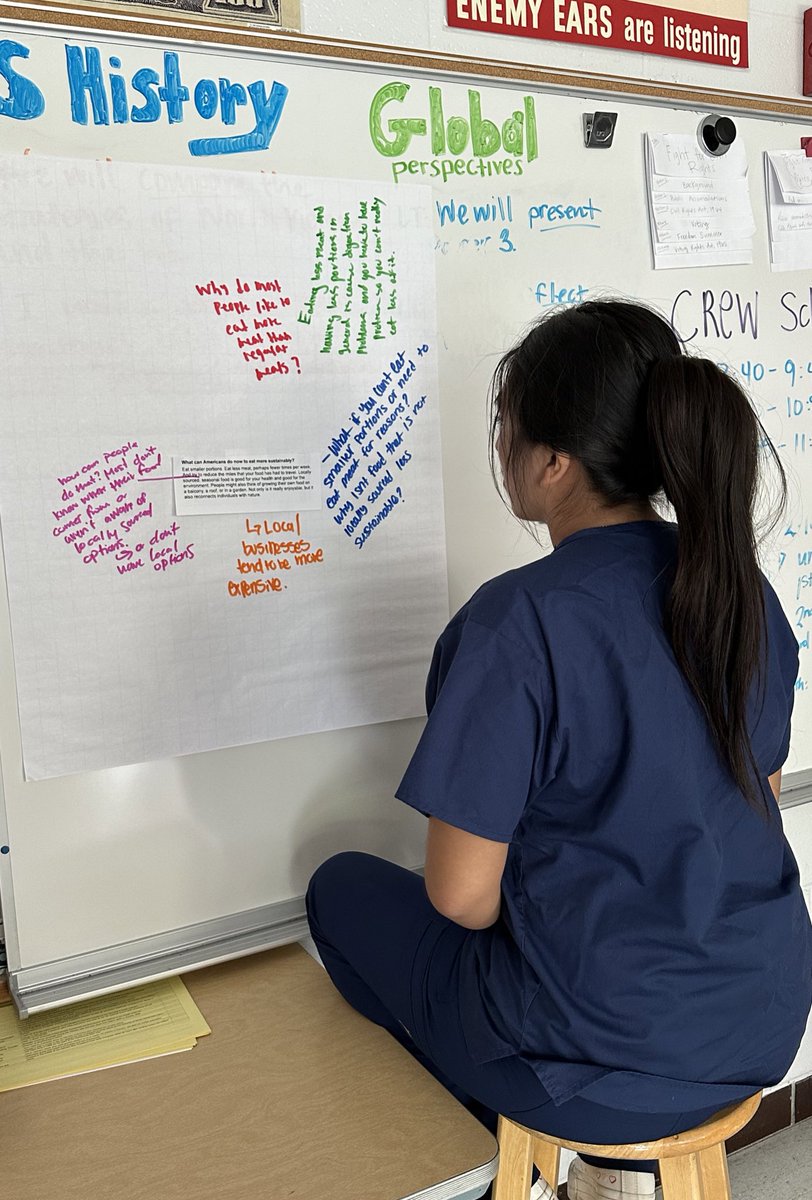 ENEMY EARS are listening
S History
Global
perspectives
We will present
3.
flect
Fight for
Rights
Background
Voting
Freedom Summer
Voting Rights Act, 1965
CREW Sch
Why do most
people like to
eat more
meat than
regular
meats?
Eating less meat and
having less portions in
general is cause digestion
problems and you have to have
problem so you can't really
eat less of it.
- What if you can't eat
smaller portions or need to
eat meat for reasons?
Why isn't food that is not
locally sourced less
sustainable?
how can people
do that? Most don't
know where their food
comes from or
aren't aware of
locally sourced
options.
↳ or don't
have local options
What can Americans do now to eat more sustainably?
Eat smaller portions. Eat less meat, perhaps fewer times per week.
And try to reduce the miles that your food has had to travel. Locally
sourced, seasonal food is good for your health and good for the
environment. People might also think of growing their own food on
a balcony, a roof, or in a garden. Not only is it really enjoyable, but it
also reconnects individuals with nature.
↳ Local
businesses
tend to be more
expensive.